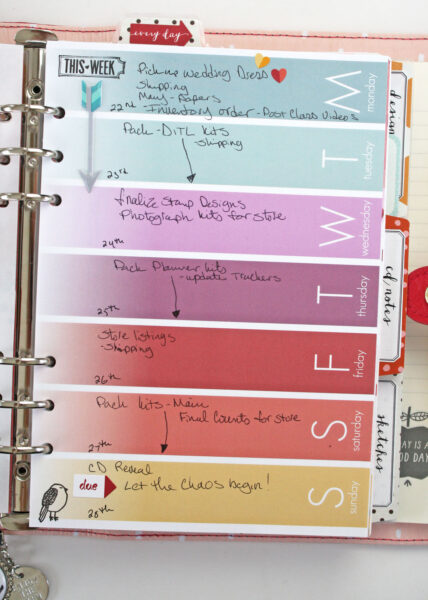 every day
THIS WEEK
Pick-up Wedding Dress
Shipping
Papers
22nd - Inventory order - Post Class Videos
M
monday
Pack - DITL kits
- Shipping
23rd
T
tuesday
finalize Stamp Designs
Photograph kits for store
24th
W
wednesday
Pack Planner kits
- update Trackers
25th
T
thursday
Store listings
- Shipping
26th
F
friday
Pack kits - Main
Final Counts for store
27th
S
saturday
CD Reveal
due
Let the Chaos begin!
28th
S
sunday
design
cd notes
sketches